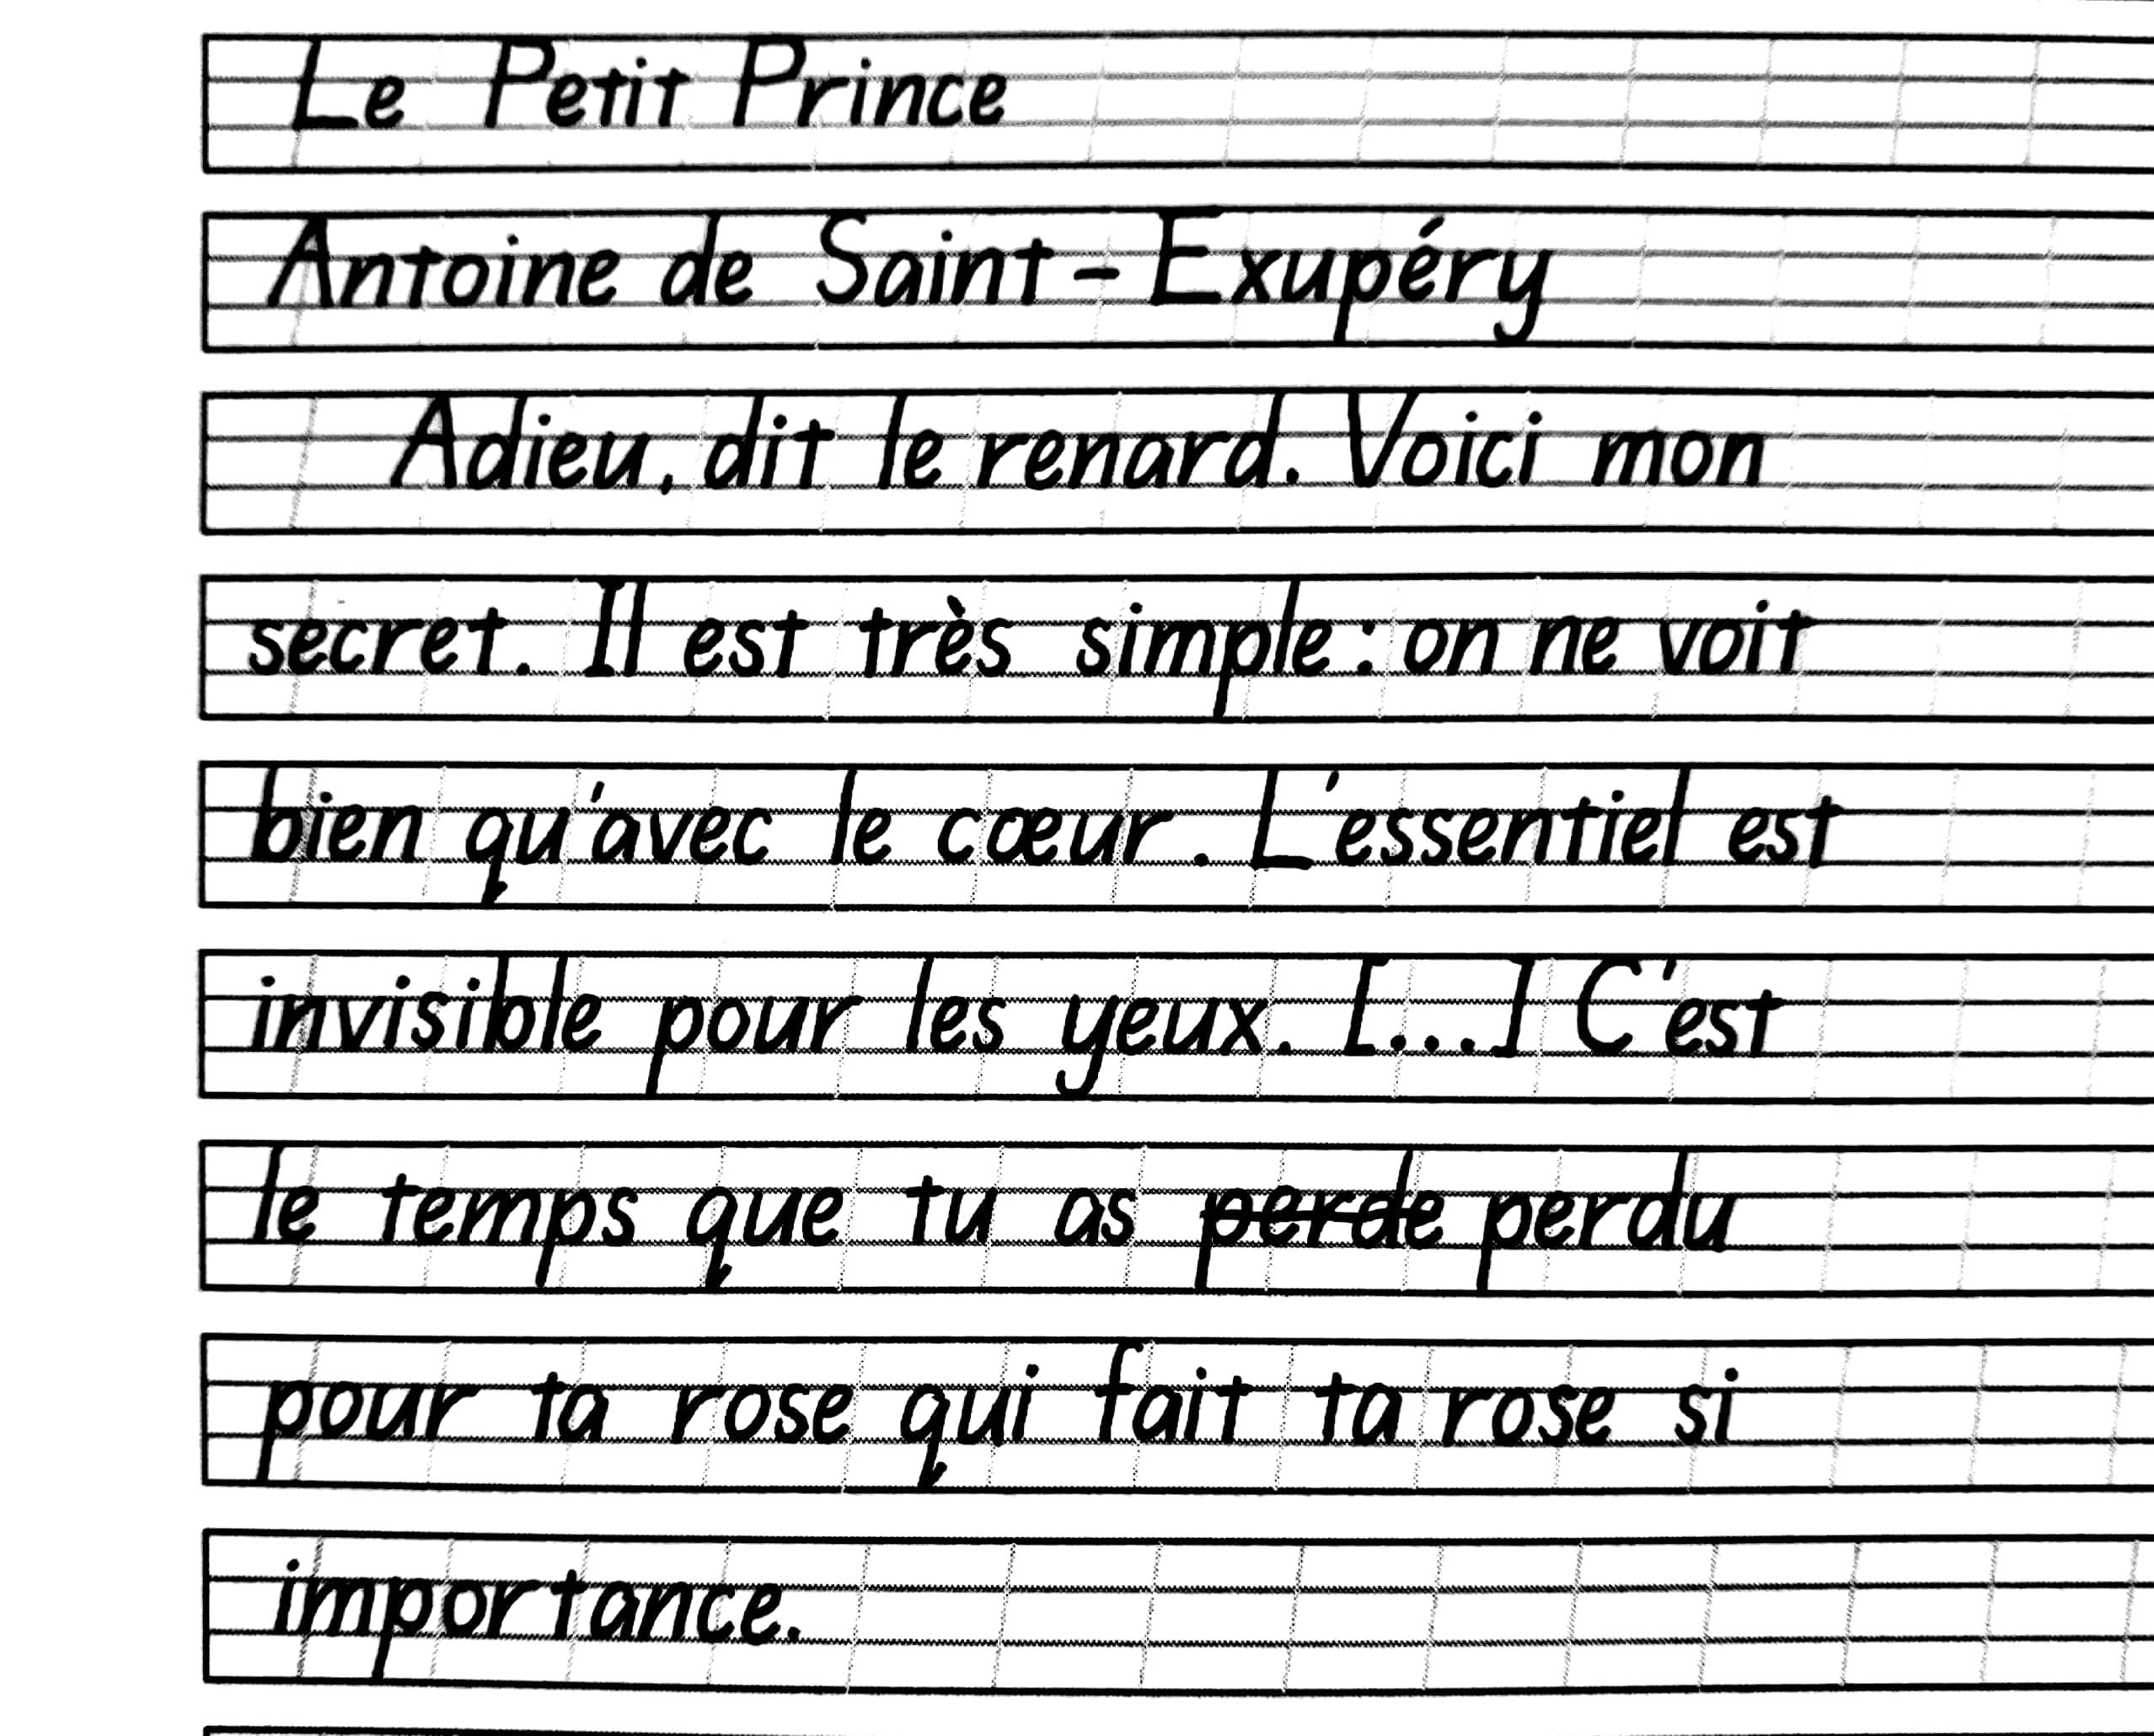 Le Petit Prince
Antoine de Saint-Exupéry
Adieu, dit le renard. Voici mon
secret. Il est très simple : on ne voit
bien qu'avec le cœur. L'essentiel est
invisible pour les yeux. [...] C'est
le temps que tu as perde perdu
pour ta rose qui fait ta rose si
importance.